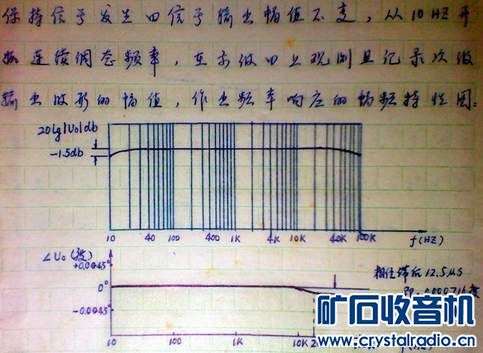 保持信号发生四信号输出幅值不变，从10HZ开
始连续调态频率，在示波四上观测且纪录次级
输出波形的幅值，作出频率响应的幅频特性图。
20lg|Uo|db
-1.5db
10 40 100 400 1K 4K 10K 40K 100K f(HZ)
∠Uo(度)
+0.0045°
0°
-0.0045°
相位滞后12.5μS
10 100 1K 10K
矿石收音机
www.crystalradio.cn